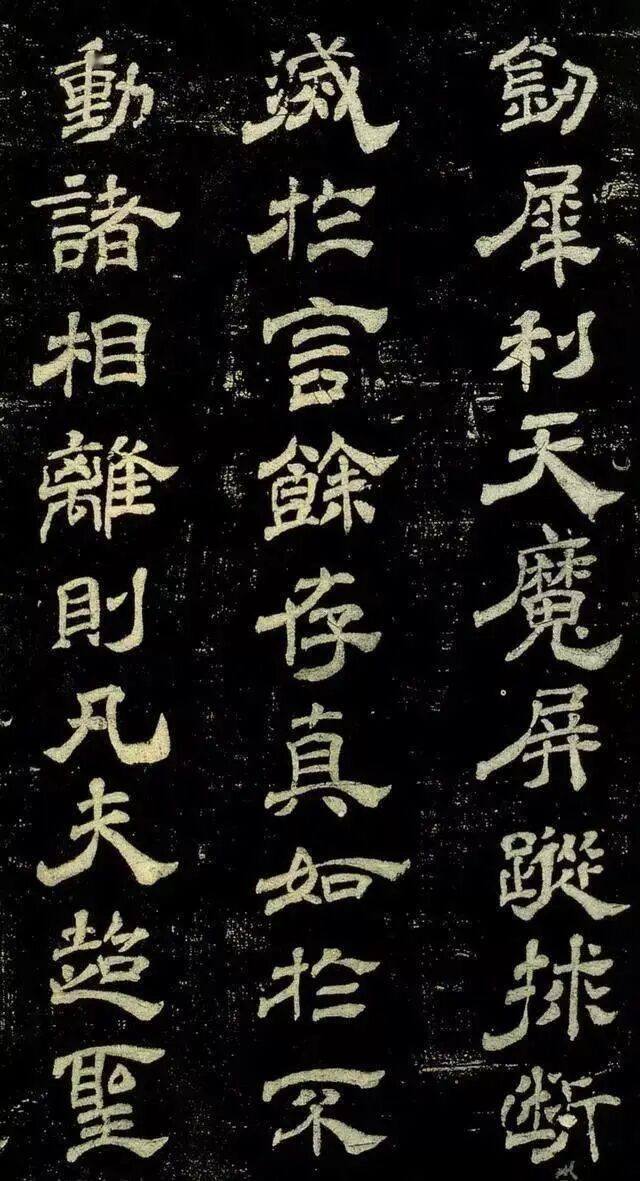 釼犀利天魔屏蹤捄斷
滅於言餘存真如於不
動諸相離則凡夫超聖